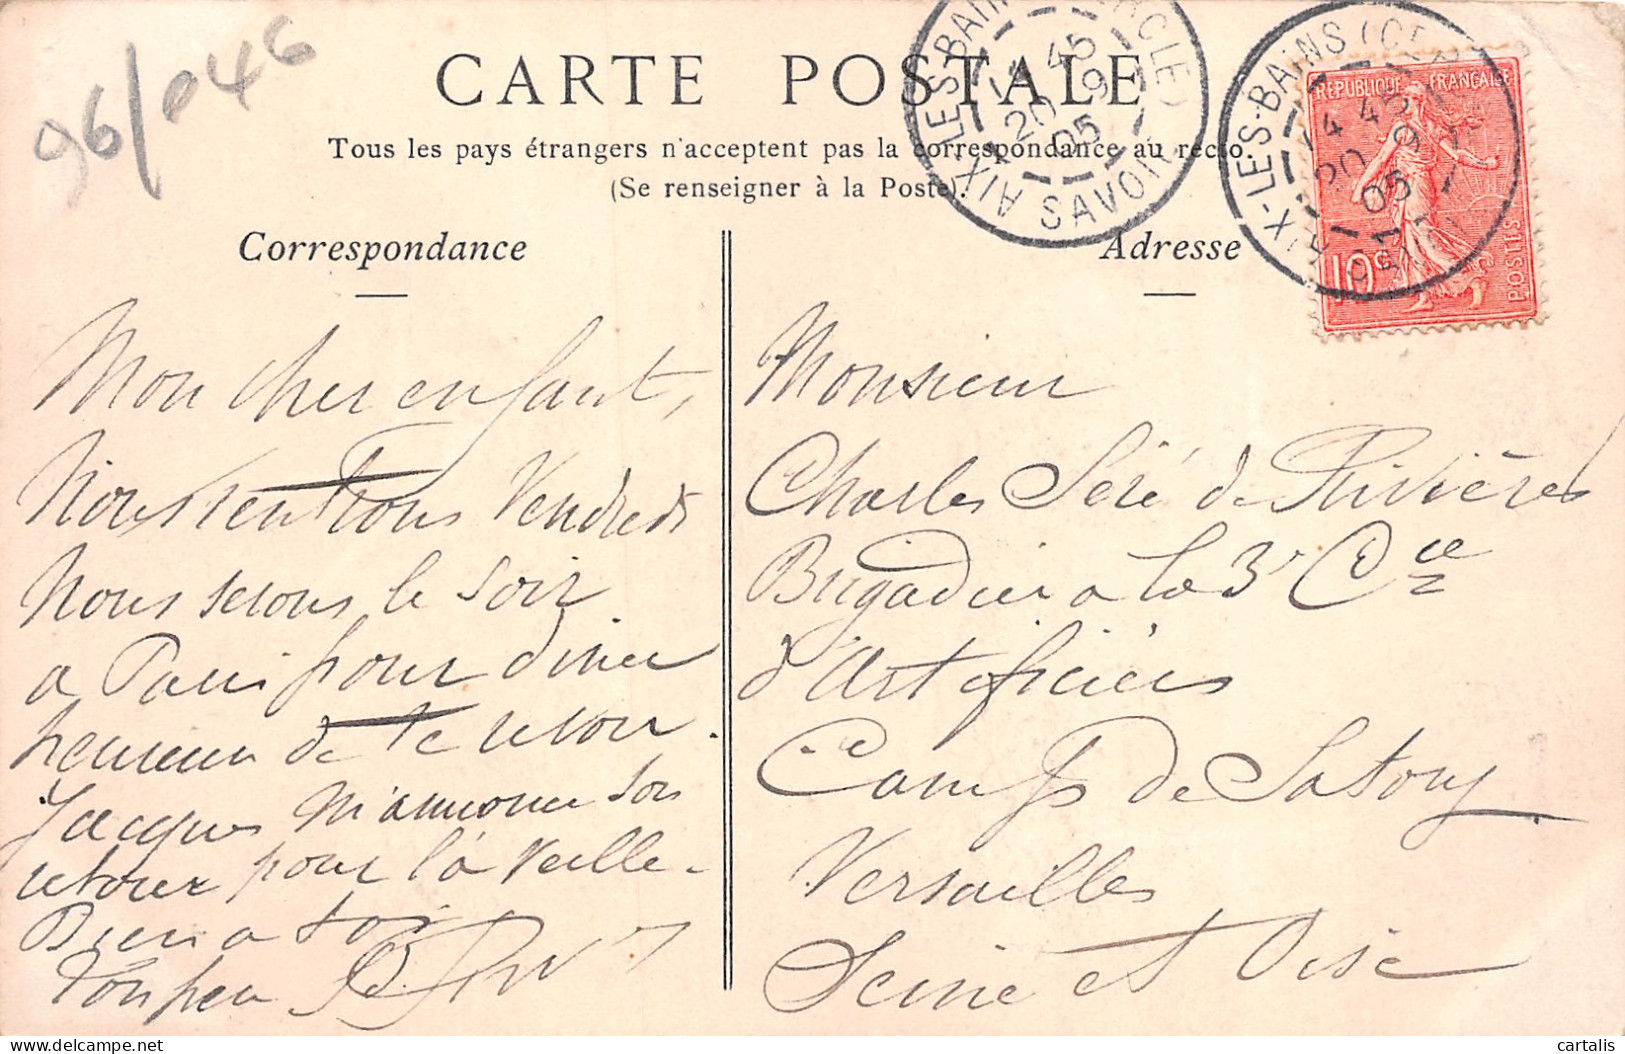 96/046
CARTE POSTALE
Tous les pays étrangers n'acceptent pas la correspondance au recto.
(Se renseigner à la Poste).
AIX-LES-BAINS (CERCLE)
14 45
20 9
05
SAVOIE
AIX-LES-BAINS (CERCLE)
14 45
20 9
05
SAVOIE
REPUBLIQUE FRANÇAISE
10c
POSTES
Correspondance
Mon cher enfant,
Nous rentrons Vendredi
Nous serons le soir
a Paris pour diner
heureux de te revoir.
Jacques m'annonce son
retour pour la veille.
Bien a toi
Ton pere
Adresse
Monsieur
Charles Séré de Rivières
Brigadier a la 3e Cie
d'Artificiers
Camp de Satory
Versailles
Seine et Oise
cartalis
delcampe.net